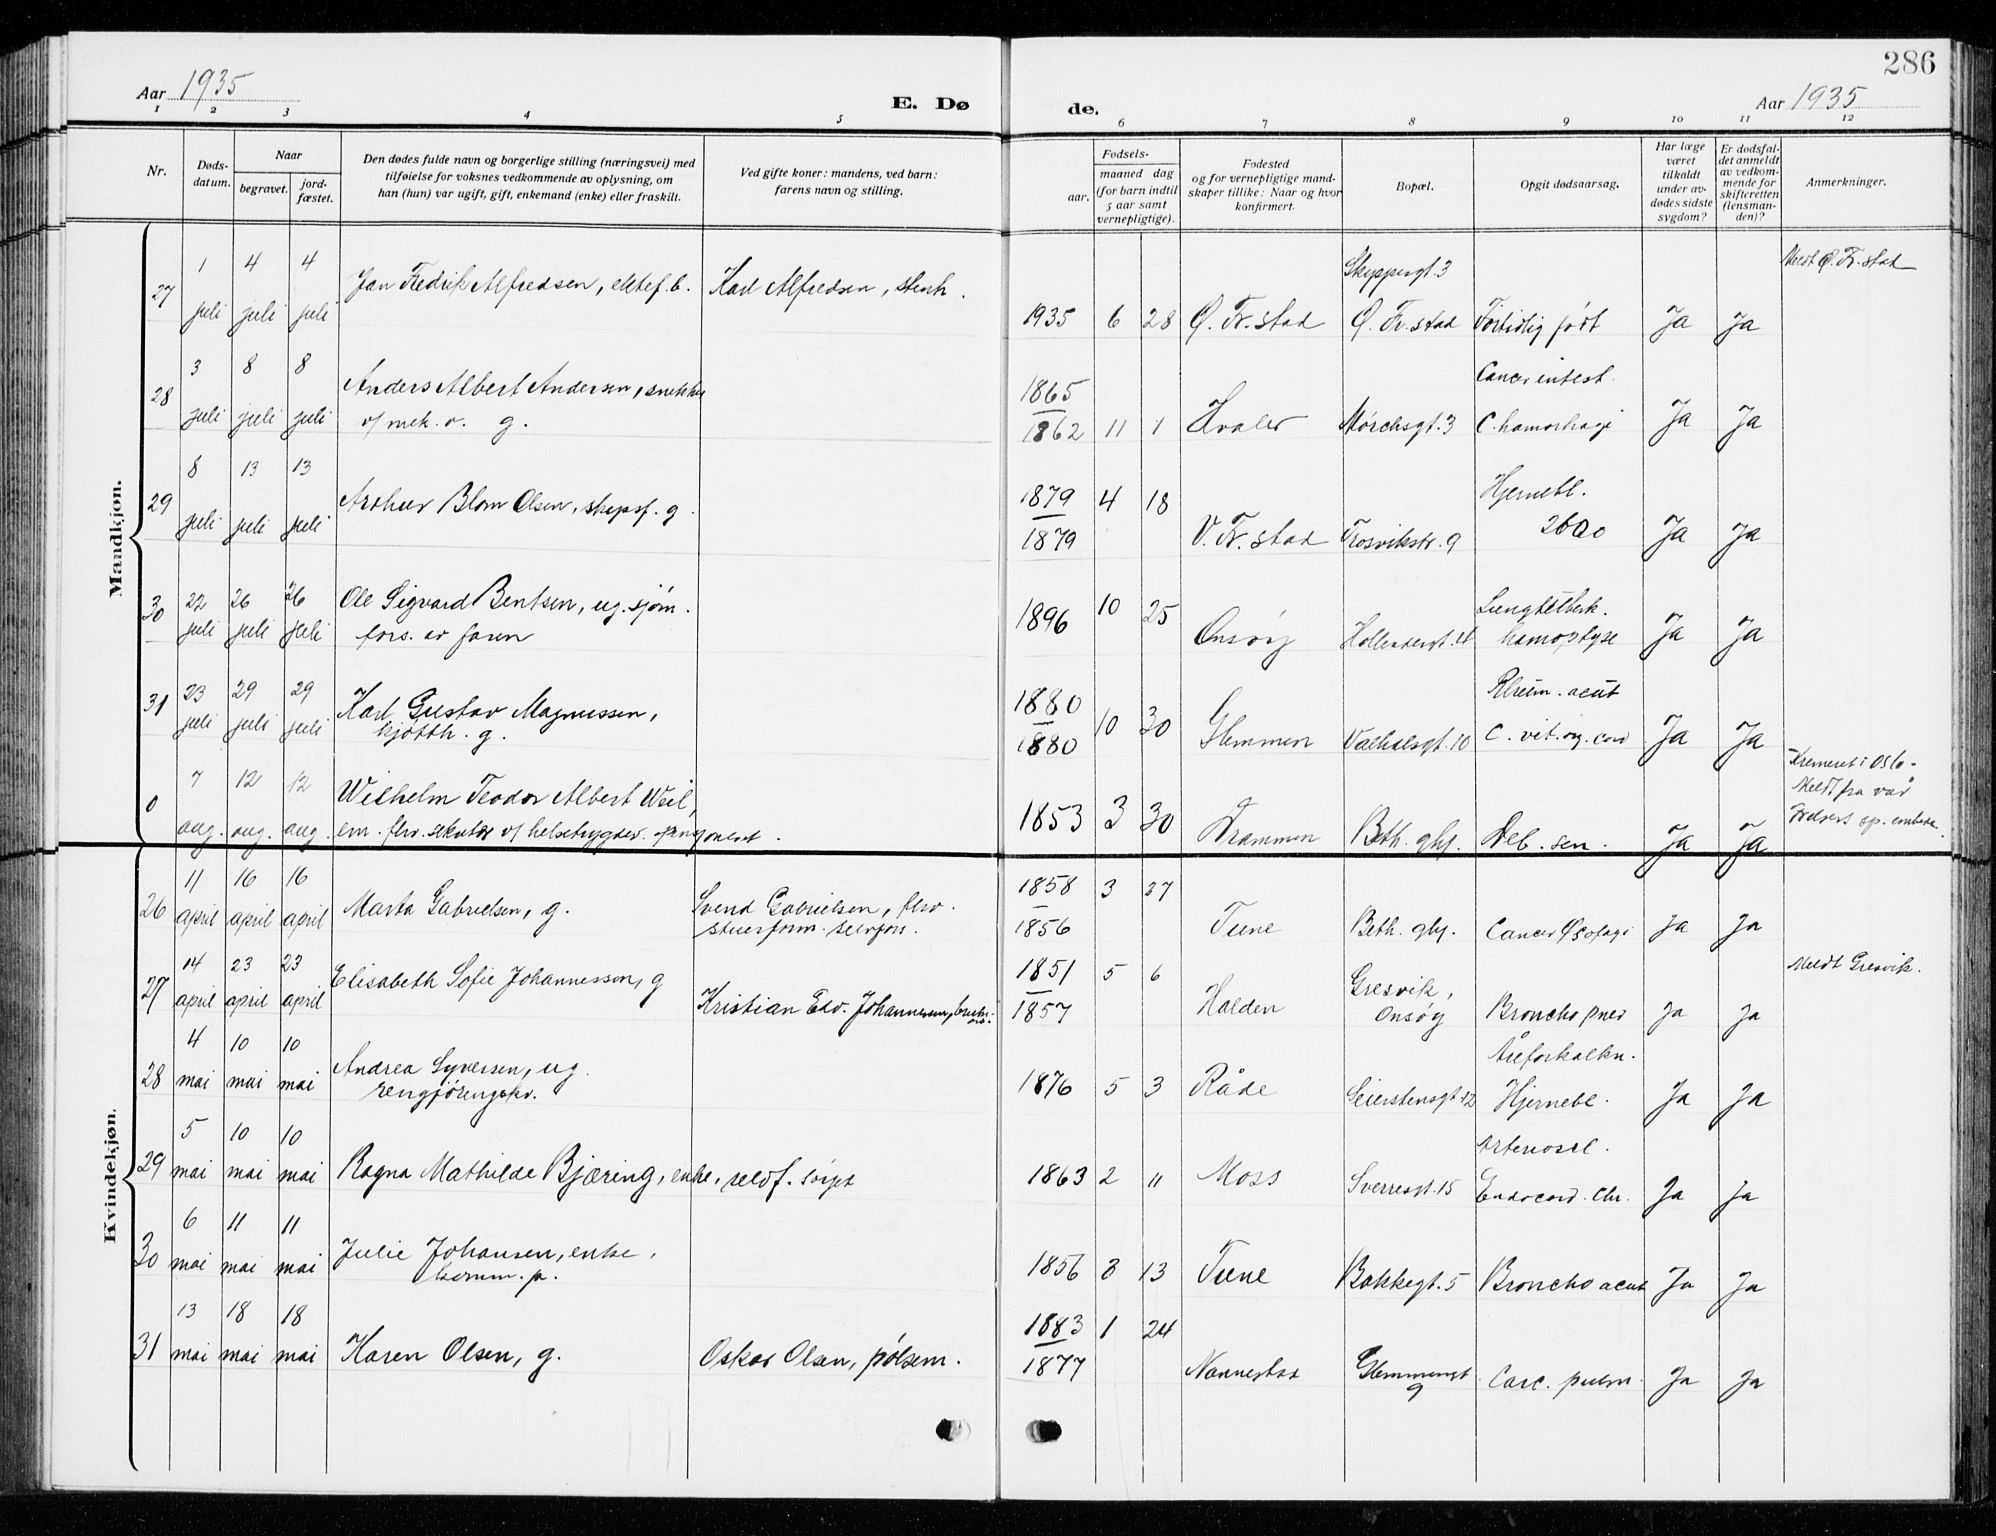 286
Aar 1935
E. Dø
de.
Aar 1935
1 2 3 4 5 6 7 8 9 10 11 12
Nr.
Døds-
datum.
Naar
begravet.
jord-
fæstet.
Den dødes fulde navn og borgerlige stilling (næringsvei) med
tilføielse for voksnes vedkommende av oplysning, om
han (hun) var ugift, gift, enkemand (enke) eller fraskilt.
Ved gifte koner: mandens, ved barn:
farens navn og stilling.
Fødsels-
aar.
maaned dag
(for barn indtil
5 aar samt
vernepligtige).
Fødested
og for vernepligtige mand-
skaper tillike: Naar og hvor
konfirmert.
Bopæl.
Opgit dødsaarsag.
Har læge
været
tilkaldt
under av-
dødes sidste
sygdom?
Er dødsfal-
det anmeldt
av vedkom-
mende for
skifteretten
(lensman-
den)?
Anmerkninger.
Mandkjøn.
1 4 4 Skyppergt. 3 Meldt Ø. Fr.stad
27 juli juli juli Jan Fredrik Alfredsen, ektef. b. Karl Alfredsen, stenh.
1935 6 28 Ø. Fr.stad Ø. Fr.stad Fortidlig født Ja Ja
3 8 8 1865 Cancer intest.
28 juli juli juli Anders Albert Andersen, snekker
v/ mek. v. g. 1862 11 1 Hvaler Mørchsgt. 3 C. hamorhagi Ja Ja
8 13 13 1879 4 18 Hjernebl.
29 juli juli juli Arthur Blom Olsen, skipsf. g.
1879 V. Fr.stad Trosvikstr. 9 Ja Ja
22 26 26
30 juli juli juli Ole Sigvard Bentsen, ug. sjøm.
fors. av faren 1896 10 25 Onsøy Hollendergt. 4 hamoptyse Ja Ja
23 29 29 1880 Rheum. acut
31 juli juli juli Karl Gustav Magnussen,
kjøtth. g. 1880 10 30 Glemmen Valhalsgt. 10 C. vit. org. cord Ja Ja
7 12 12 Kremeret i Oslo.
0 aug. aug. aug. Wilhelm Teodor Albert Weil,
em. flrv. sekretær v/ helsetrygdev.
1853 3 30 Drammen Beth. ghj. Deb. sen. Ja Ja Meldt fra vår
Kvindekjøn.
11 16 16 1858 3 27
26 april april april Marta Gabrielsen, g. Svend Gabrielsen, flrv.
stuerform. selvfors. 1856 Tune Beth. ghj. Cancer Øsofagi Ja Ja
14 23 23 1851 5 6 Gresvik, Meldt Gresvik.
27 april april april Elisabeth Sofie Johannessen, g
Kristian Edv. Johannessen, 1857 Halden Onsøy Broncho pneu Ja Ja
4 10 10 Åreforkalkn.
28 mai mai mai Andrea Syversen, ug.
rengjøringskv. 1876 5 3 Råde Seierstensgt. 12 Hjernebl. Ja Ja
5 10 10 Arterioscl.
29 mai mai mai Ragna Mathilde Bjæring, enke, selvf.
1863 2 " Moss Sverresgt. 15 Endocard. chr. Ja Ja
6 11 11
30 mai mai mai Julie Johansen, enke,
komm. p. 1856 8 13 Tune Bakkegt. 5 Broncho acut Ja Ja
13 18 18 1883 1 24
31 mai mai mai Karen Olsen, g. Oskar Olsen, pølsem.
1877 Nannestad Glemmengt. 9 Carc. pulm. Ja Ja